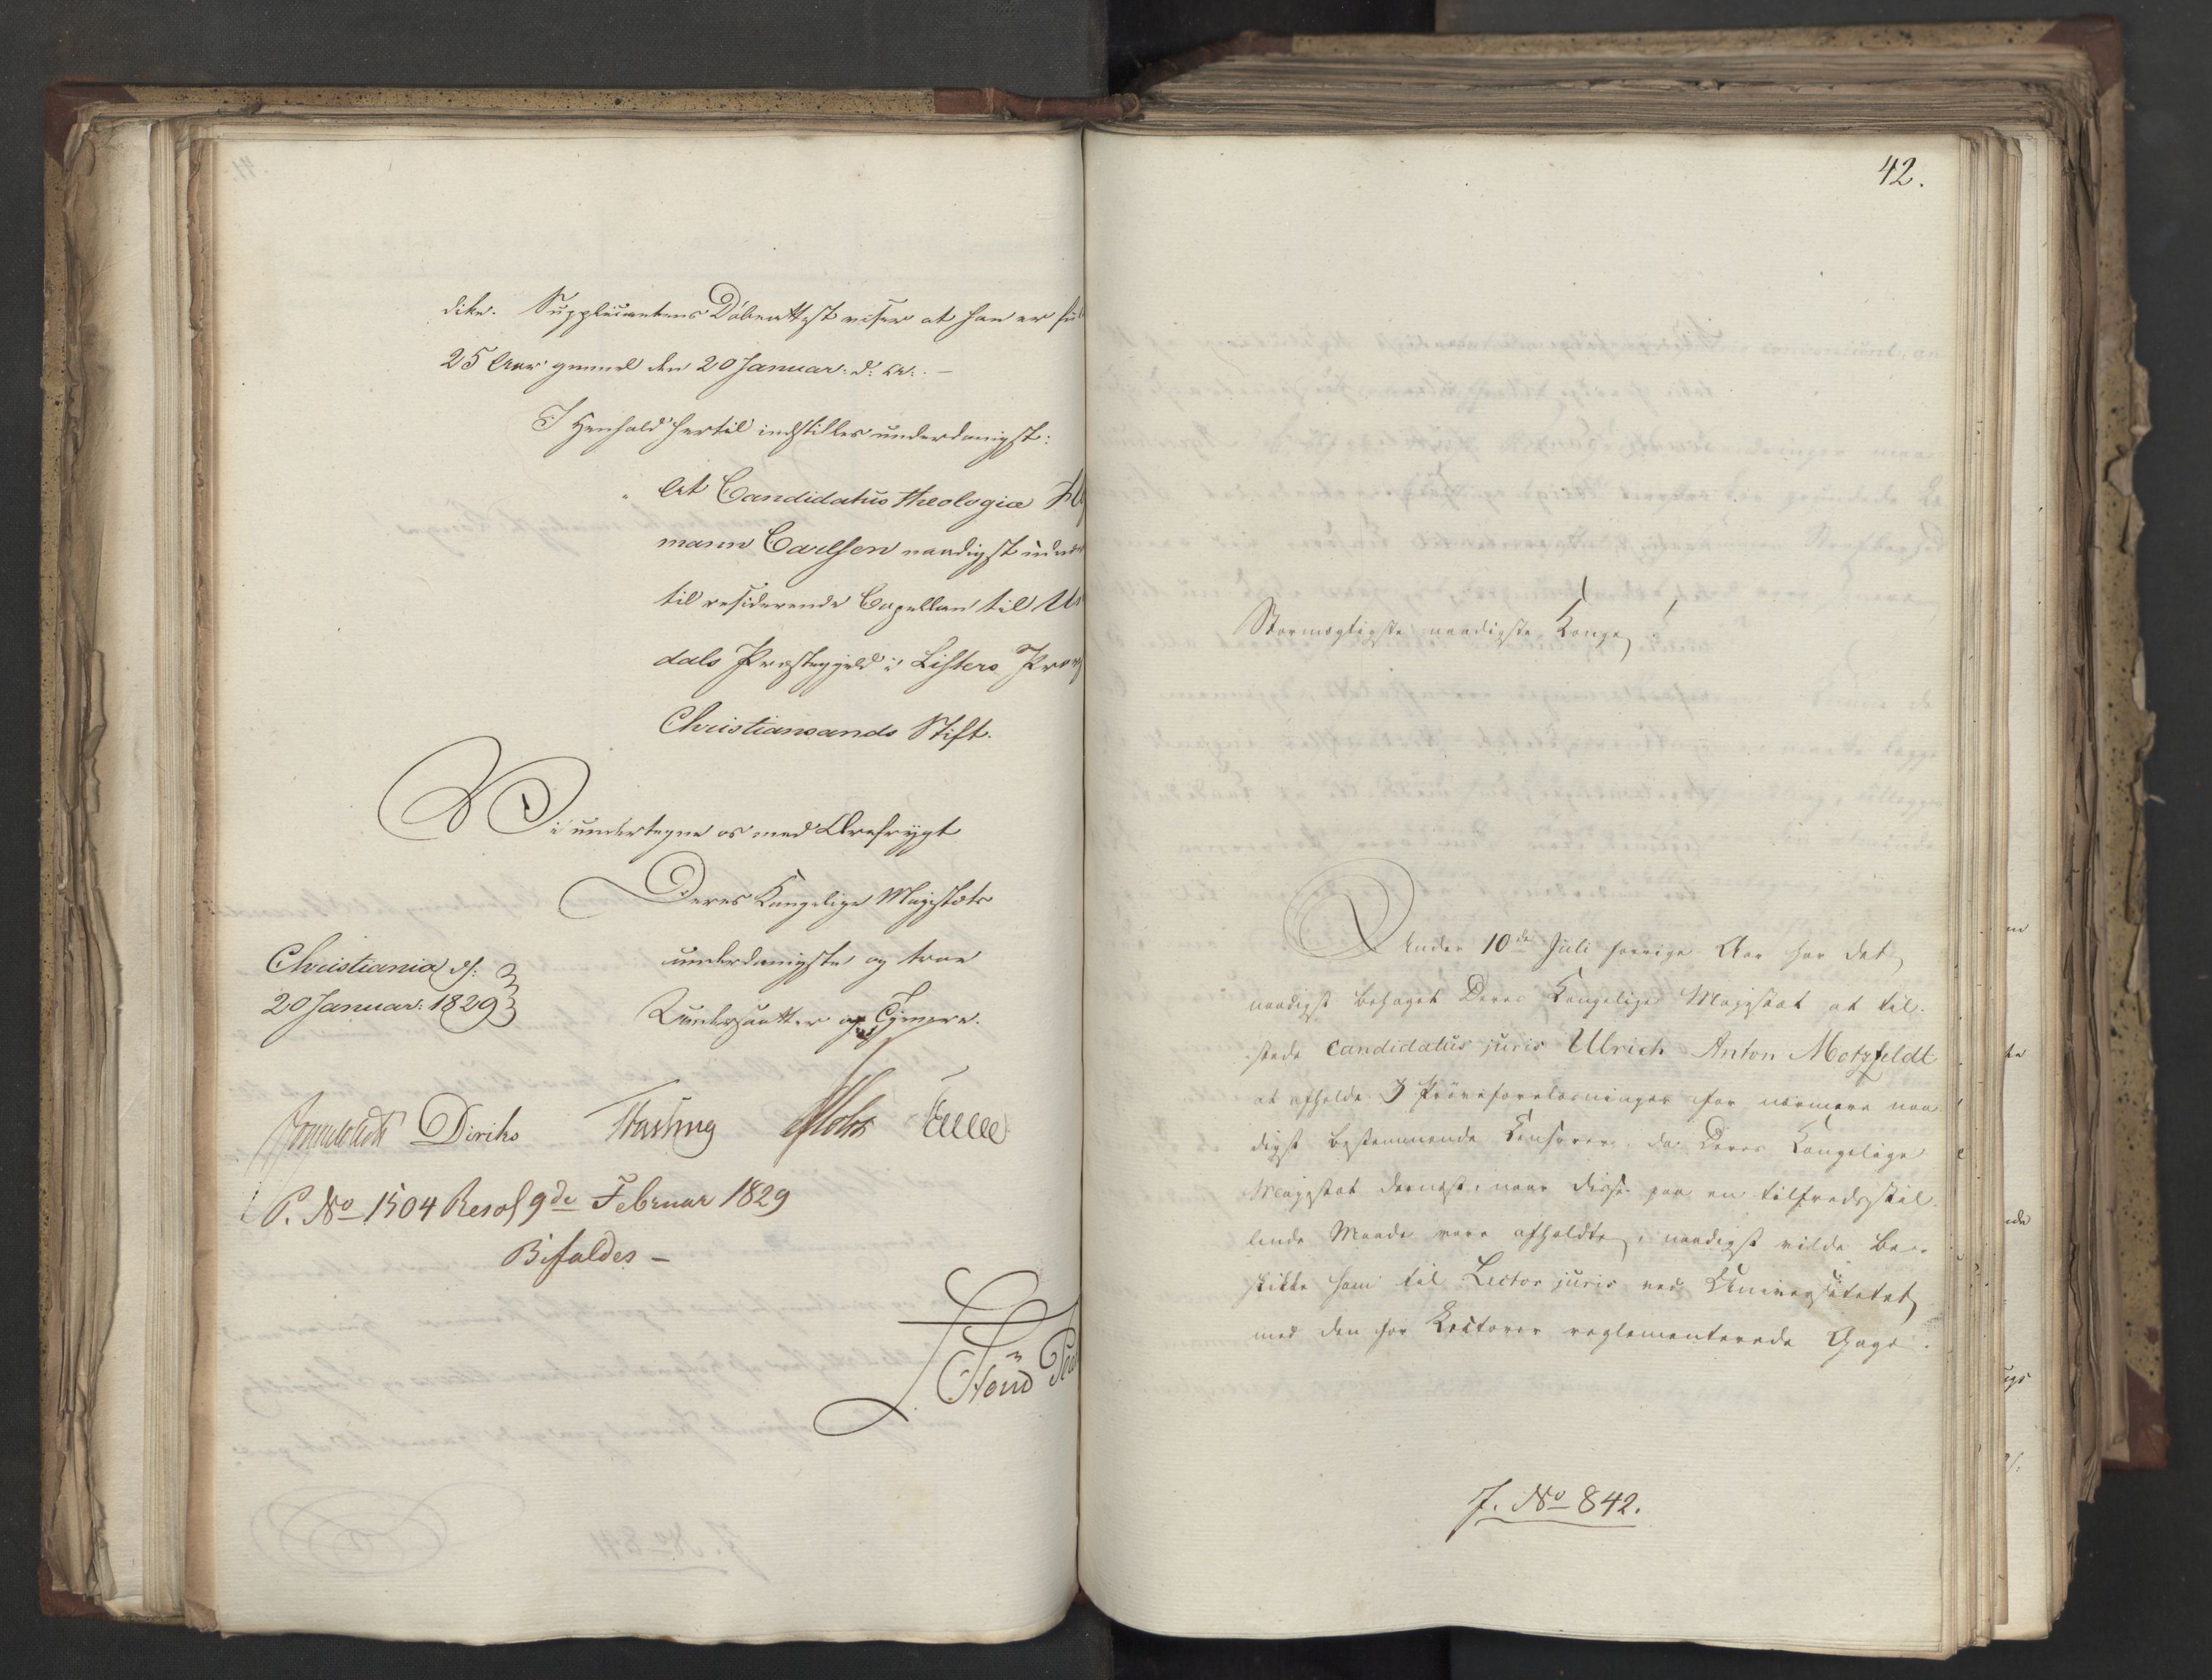 dike. Supplicantens Döbeattest viser at han er
25 Aar gammel den 20 Januar: d: A:. —
I Henhold hertil indstilles underdanigst:
" At Candidatus theologiæ
mann Carlsen naadigst
til residerende Capellan til
dals Præstegjeld i Listers
Christiansands Stift.
Vi undertegne os med Ærefrygt
Deres Kongelige Majestæts
underdanigste og troe
Undersaatter og Tjenere.
Christiania d:
20 Januar: 1829
Diriks
P. No 1504 Resol 9de Februar 1829
Bifaldes —
42.
Stormægtigste naadigste Konge!
Under 10de Juli forrige Aar har det
naadigst behaget Deres Kongelige Majestæt at til-
stede Candidatus juris Ulrich Anton Motzfeldt
at afholde 3 Prøveforelæsninger for nærmere naa
digst bestemmende Censorer, da Deres Kongelige
Majestæt dernæst, naar disse paa en tilfredsstil
lende Maade vare afholdte, naadigst vilde be-
skikke ham til Lector juris ved Universitetet
med den for Lectorer reglementerede Gage.
J. No 842.